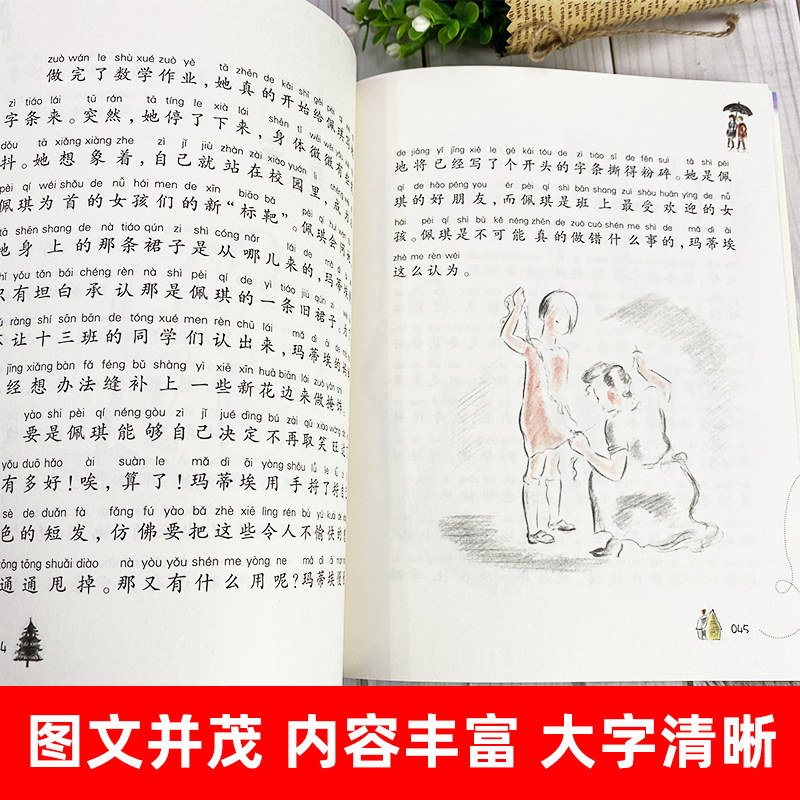 zuò wán le shù xué zuò yè tā zhēn de kāi shǐ gěi pèi
做完了数学作业，她真的开始给佩琪
zì tiáo lái tū rán tā tíng le xià lái shēn tǐ wēi wēi
字条来。突然，她停了下来，身体微微有
dǒu tā xiǎng xiàng zhe zì jǐ jiù zhàn zài xiào yuán lǐ
抖。她想象着，自己就站在校园里，成为
pèi qí wéi shǒu de nǚ hái men de xīn biāo bǎ pèi qí huì
佩琪为首的女孩们的新“标靶”。佩琪会问
tā shēn shang de nà tiáo qún zi shì cóng nǎr lái de mǎ dì āi
她身上的那条裙子是从哪儿来的，玛蒂埃
zhǐ yǒu tǎn bái chéng rèn nà shì pèi qí de yì tiáo jiù qún zi
只有坦白承认那是佩琪的一条旧裙子。
ràng shí sān bān de tóng xué men rèn chū lái mǎ dì āi
让十三班的同学们认出来，玛蒂埃
jīng xiǎng bàn fǎ féng bǔ shàng yì xiē xīn huā biān lái zuò yǎn shì
经想办法缝补上一些新花边来做掩饰
yào shi pèi qí néng gòu zì jǐ jué dìng bú zài qǔ xiào wàng
要是佩琪能够自己决定不再取笑旺
yǒu duō hǎo ài suàn le mǎ dì āi yòng shǒu lǚ le lǚ
有多好！唉，算了！玛蒂埃用手捋了捋自
sè de duǎn fà fǎng fú yào bǎ zhè xiē lìng rén bù yú kuài de
色的短发，仿佛要把这些令人不愉快的
tōng tōng shuǎi diào nà yòu yǒu shén me yòng ne mǎ dì āi
通通甩掉。那又有什么用呢？玛蒂埃慢
4
de jiāng yǐ jīng xiě le gè kāi tóu de zì tiáo sī de fěn suì tā shì pèi
地将已经写了个开头的字条撕得粉碎。她是佩
qí de hǎo péng you ér pèi qí shì bān shang zuì shòu huān yíng de nǚ
琪的好朋友，而佩琪是班上最受欢迎的女
hái pèi qí shì bù kě néng zhēn de zuò cuò shén me shì de mǎ dì āi
孩。佩琪是不可能真的做错什么事的，玛蒂埃
zhè me rèn wéi
这么认为。
045
图文并茂 内容丰富 大字清晰